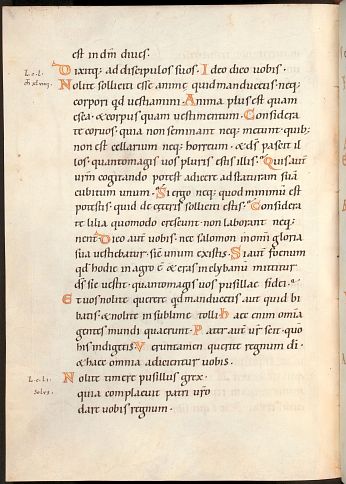 est in dm̄ dives.
Dixitq; ad discipulos suos. Ideo dico vobis.
Nolite solliciti esse animę quid manducetis. neq;
corpori qđ vestiamini. Anima plus est quam
esca. & corpus quam vestimentum. Considera
te corvos. quia non seminant neq; metunt. quib;
non est cellarium neq; horreum. & ds̄ pascit il
los. quantomagis vos pluris estis illis. Quis aut̄
vr̄m cogitando potest adicere ad staturam suā
cubitum unum. Si ergo neq; quod minimū est
potestis. quid de cęteris solliciti estis. Considera
te lilia quomodo crescunt. non laborant neq;
nent. Dico aut̄ vobis. nec salomon in om̄i gloria
sua vestiebatur. sic̄ unum ex istis. Si aut̄ foenum
qđ hodie in agro ē & cras in clybanū mittitur
ds̄ sic vestit. quantomagis vos pusillae fidei.
Et vos nolite querere qđ manducetis. aut quid bi
batis. & nolite in sublime tolli. Haec enim omia
gentes mundi quaerunt. Pater aut̄ vr̄ scit. quo
his indigetis. Veruntamen querite regnum dī.
& haec omnia adicientur vobis.
Nolite timere pusillus grex.
quia complacuit patri vr̄o
dare vobis regnum.